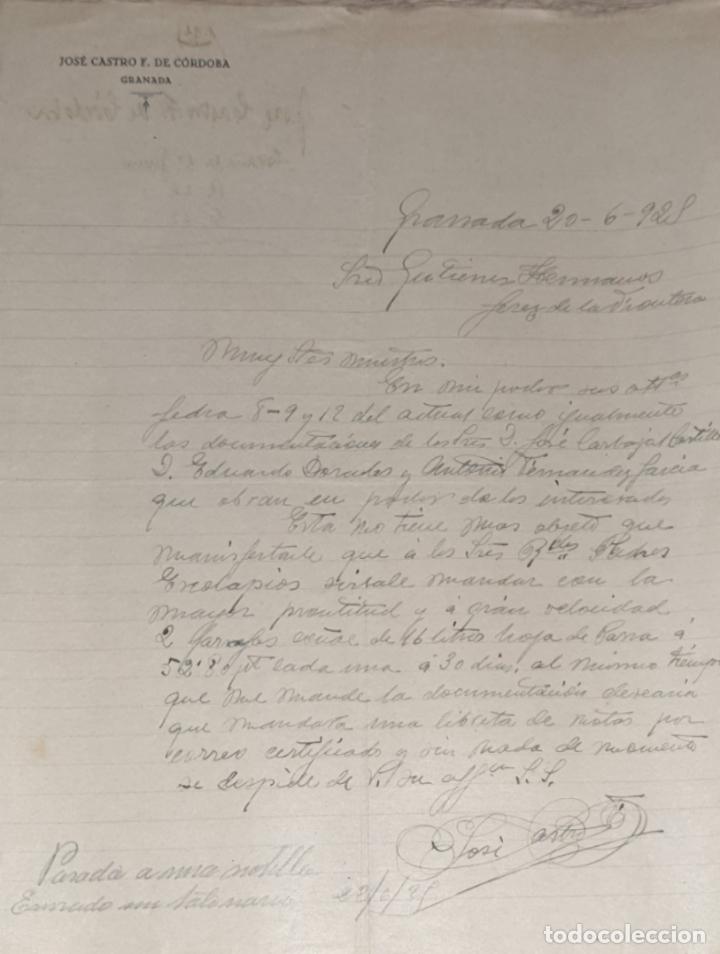 JOSÉ CASTRO F. DE CÓRDOBA
GRANADA
Granada 20-6-925
Sres Gutierrez Hermanos
Jerez de la Frontera
Muy Sres nuestros.
En mi poder sus attas
fechas 8-9 y 12 del actual como igualmente
las documentaciones de los Sres D. José Carbajal Castillo
D. Eduardo Dorados y Antonio Fernandez Garcia
que obran en poder de los interesados
Esta no tiene mas objeto que
manifestarle que á los Sres Rdos Padres
Escolapios sirvale mandar con la
mayor prontitud y á gran velocidad
2 garrafas de 16 litros hoja de Parra á
52'80 pt cada una á 30 dias, al mismo tiempo
que me mande la documentación desearia
que mandara una libreta de notas por
correo certificado y sin nada de momento
se despide de V. su affmo S.S.
José Castro F.
Pasada a una notilla
Enviado un talonario 22/6/25
todocoleccion
todocoleccion.net